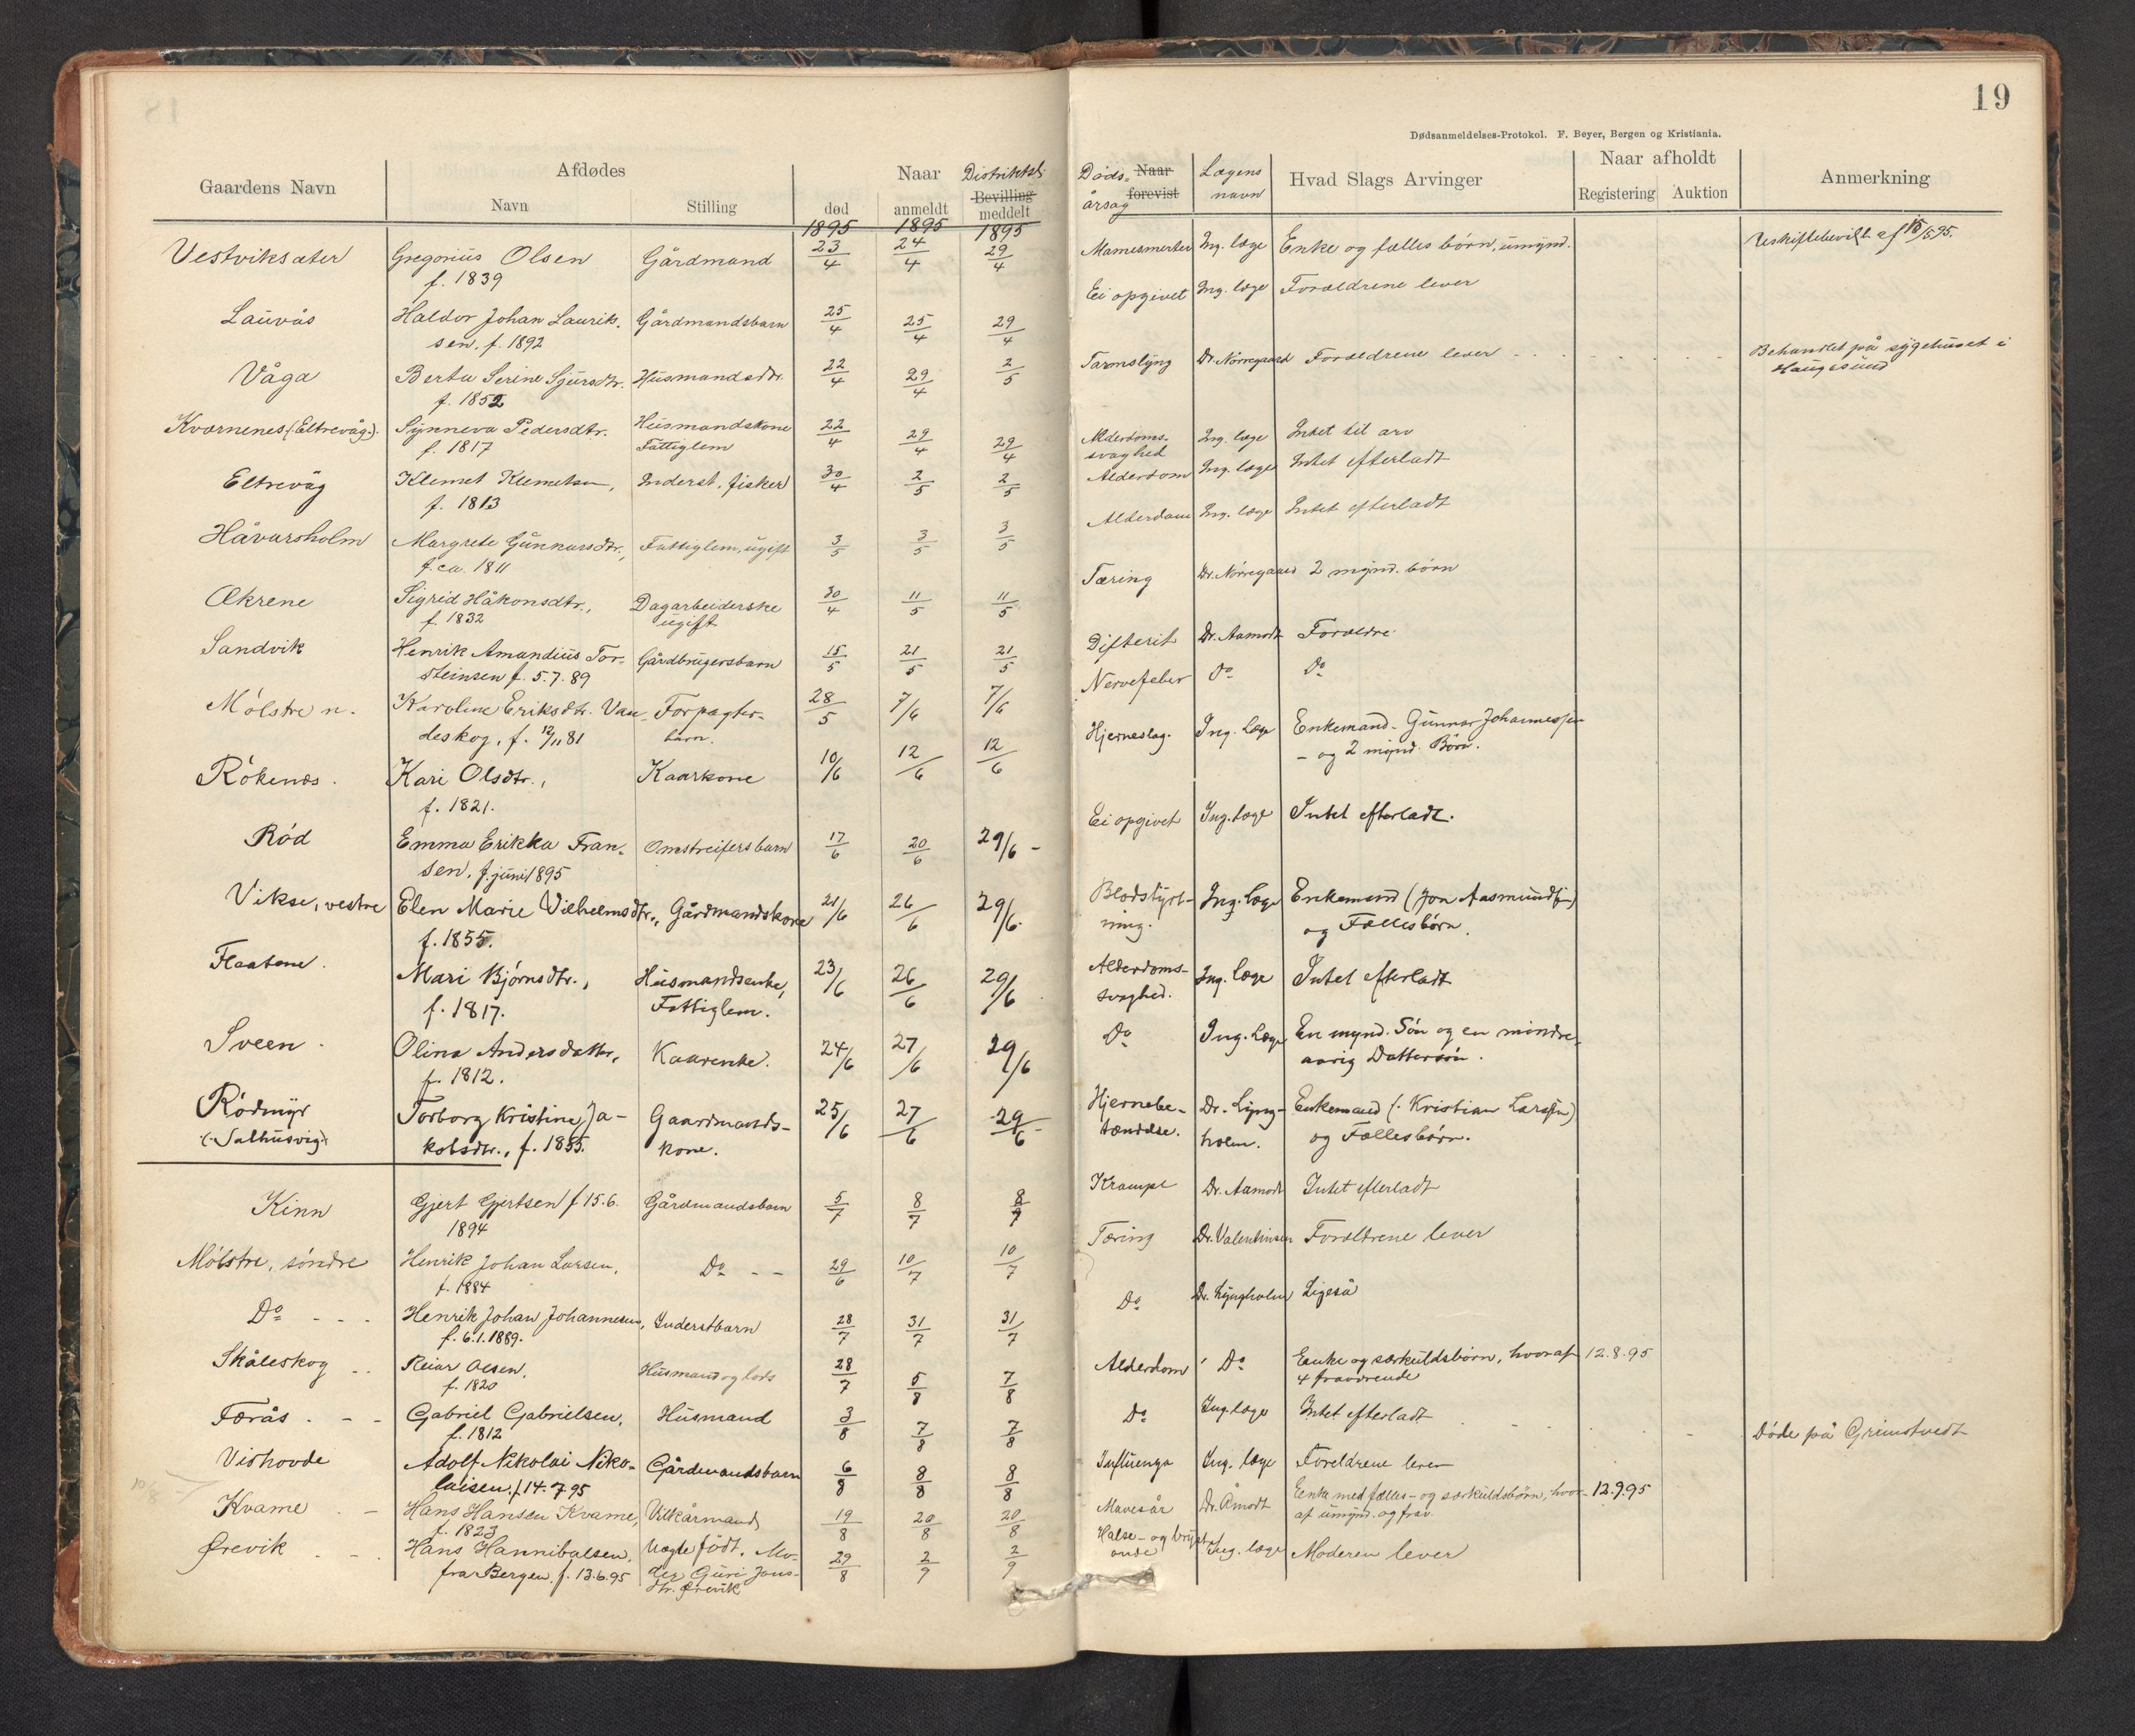 19
Dødsanmeldelses-Protokol. F. Beyer, Bergen og Kristiania.
Gaardens Navn
Afdødes
Navn
Stilling
Naar
død
anmeldt
Distriktsl.
Bevilling
meddelt
1895 1895 1895
Vestviksæter Gregorius Olsen Gårdmand 23/4 24/4 29/4
f. 1839
Lauvås Haldor Johan Laurit- Gårdmandsbarn 25/4 25/4 29/4
sen, f. 1892
Våga Berta Serine Sjursdtr. Husmandsdtr. 22/4 29/4 2/5
f. 1852
Kvernenes (Eltrevåg) Synneva Pedersdtr. Husmandskone 22/4 29/4 29/4
f. 1817 Fattiglem
Eltrevåg Klemet Klemetsen, Inderst, fisker 30/4 2/5 2/5
f. 1813
Håvarsholm Margrete Gunnarsdtr., Fattiglem, ugift 3/5 3/5 3/5
f. ca. 1811
Ækrene Sigrid Håkonsdtr., Dagarbeiderske 30/4 11/5 11/5
f. 1832 ugift
Sandvik Henrik Amandius Tor- Gårdbrugersbarn 15/5 21/5 21/5
steinsen f. 5.7.89
Mølstre n. Karoline Eriksdtr. Van- Forpagter- 28/5 7/6 7/6
deskog, f. 12/11 81 barn.
Rökenes. Kari Olsdtr., Kaarkone 10/6 12/6 12/6
f. 1821.
Rød Emma Erikka Fran- Omstreifersbarn 17/6 20/6 29/6 -
sen, f. juni 1895
Vikse, vestre Elen Marie Vilhelmsdtr., Gårdmandskone 21/6 26/6 29/6.
f. 1855.
Flaatene. Mari Bjørnsdtr., Husmandsenke, 23/6 26/6 29/6
f. 1817. Fattiglem.
Sveen. Olina Andersdatter, Kaarenke. 24/6 27/6 29/6
f. 1812.
Rødmyr Torborg Kristine Ja- Gaardmands- 25/6 27/6 29/6 -
(Salhusvig) kobsdtr., f. 1855. kone.
Kinn Gjert Gjertsen f 15.6. Gårdmandsbarn 5/7 8/7 8/7
1894
Mølstre, søndre Henrik Johan Larsen, Do - - 29/6 10/7 10/7
f. 1884
Do - - - Henrik Johan Johannesen, Inderstbarn 28/7 31/7 31/7
f. 6.1.1889.
Skåleskog - - Reiar Olsen, Husmand og lods 28/7 5/8 7/8
f. 1820
Førås. - - Gabriel Gabrielsen, Husmand 3/8 7/8 7/8
f. 1812
Vishovde Adolf Nikolai Niko- Gårdmandsbarn 6/8 8/8 8/8
laisen, f. 14.7.95
Kvame. - Hans Hansen Kvame, Vilkårmand 19/8 20/8 20/8
f. 1823
Ørevik - - Hans Hannibalsen, Uægte født, Mo- 29/8 2/9 2/9
fra Bergen, f. 13.6.95 der Guri Jons-
dtr. Ørevik
Døds- Naar
årsag forevist
Lægens
navn
Hvad Slags Arvinger
Naar afholdt
Registering Auktion
Anmerkning
Mavesmerter Ing. læge Enke og fælles børn, umynd. Uskiftebevilg. af 15/5 95.
Ei opgivet Ing. læge Forældrene lever
Tarmslyng Dr. Nörregaard Forældrene lever - - - - - - Behandlet på sygehuset i
Haugesund
Alderdoms- Ing. læge Intet til arv
svaghed
Alderdom Ing. læge Intet efterladt
Alderdom Ing. læge Intet efterladt
Tæring Dr. Nörregaard 2 mynd. børn
Difterit Dr. Aamodt Forældre
Nervefeber Do Do
Hjerneslag. Ing. Læge Enkemand - Gunnar Johannessen
- og 2 mynd. Børn.
Ei opgivet Ing. læge Intet efterladt.
Blodstyrt- Ing. læge Enkemand (Jon Aasmundsen)
ning. og Fællesbørn.
Alderdoms- Ing. læge Intet efterladt
svaghed.
Do Ing. Læge En mynd. Søn og en mindre-
aarig Dattersøn.
Hjernebe- Dr. Lyng- Enkemand (Kristian Larsen)
tændelse. holm. og Fællesbørn.
Krampe Dr. Aamodt Intet efterladt
Tæring Dr. Valentinsen Forældrene lever
Do Dr. Lyngholm Ligeså
Alderdom Do Enke og særkuldsbørn, hvoraf 12.8.95
4 fraværende
Do Ing. læge Intet efterladt - - - - Døde på Grimstvedt
Influenza Ing. læge Foreldrene lever
Mavesår Dr. Åmodt Enke med fælles- og særkuldsbørn, hvor- 12.9.95
af umynd. og frav.
Halse- og bryst Ing. læge Moderen lever
onde